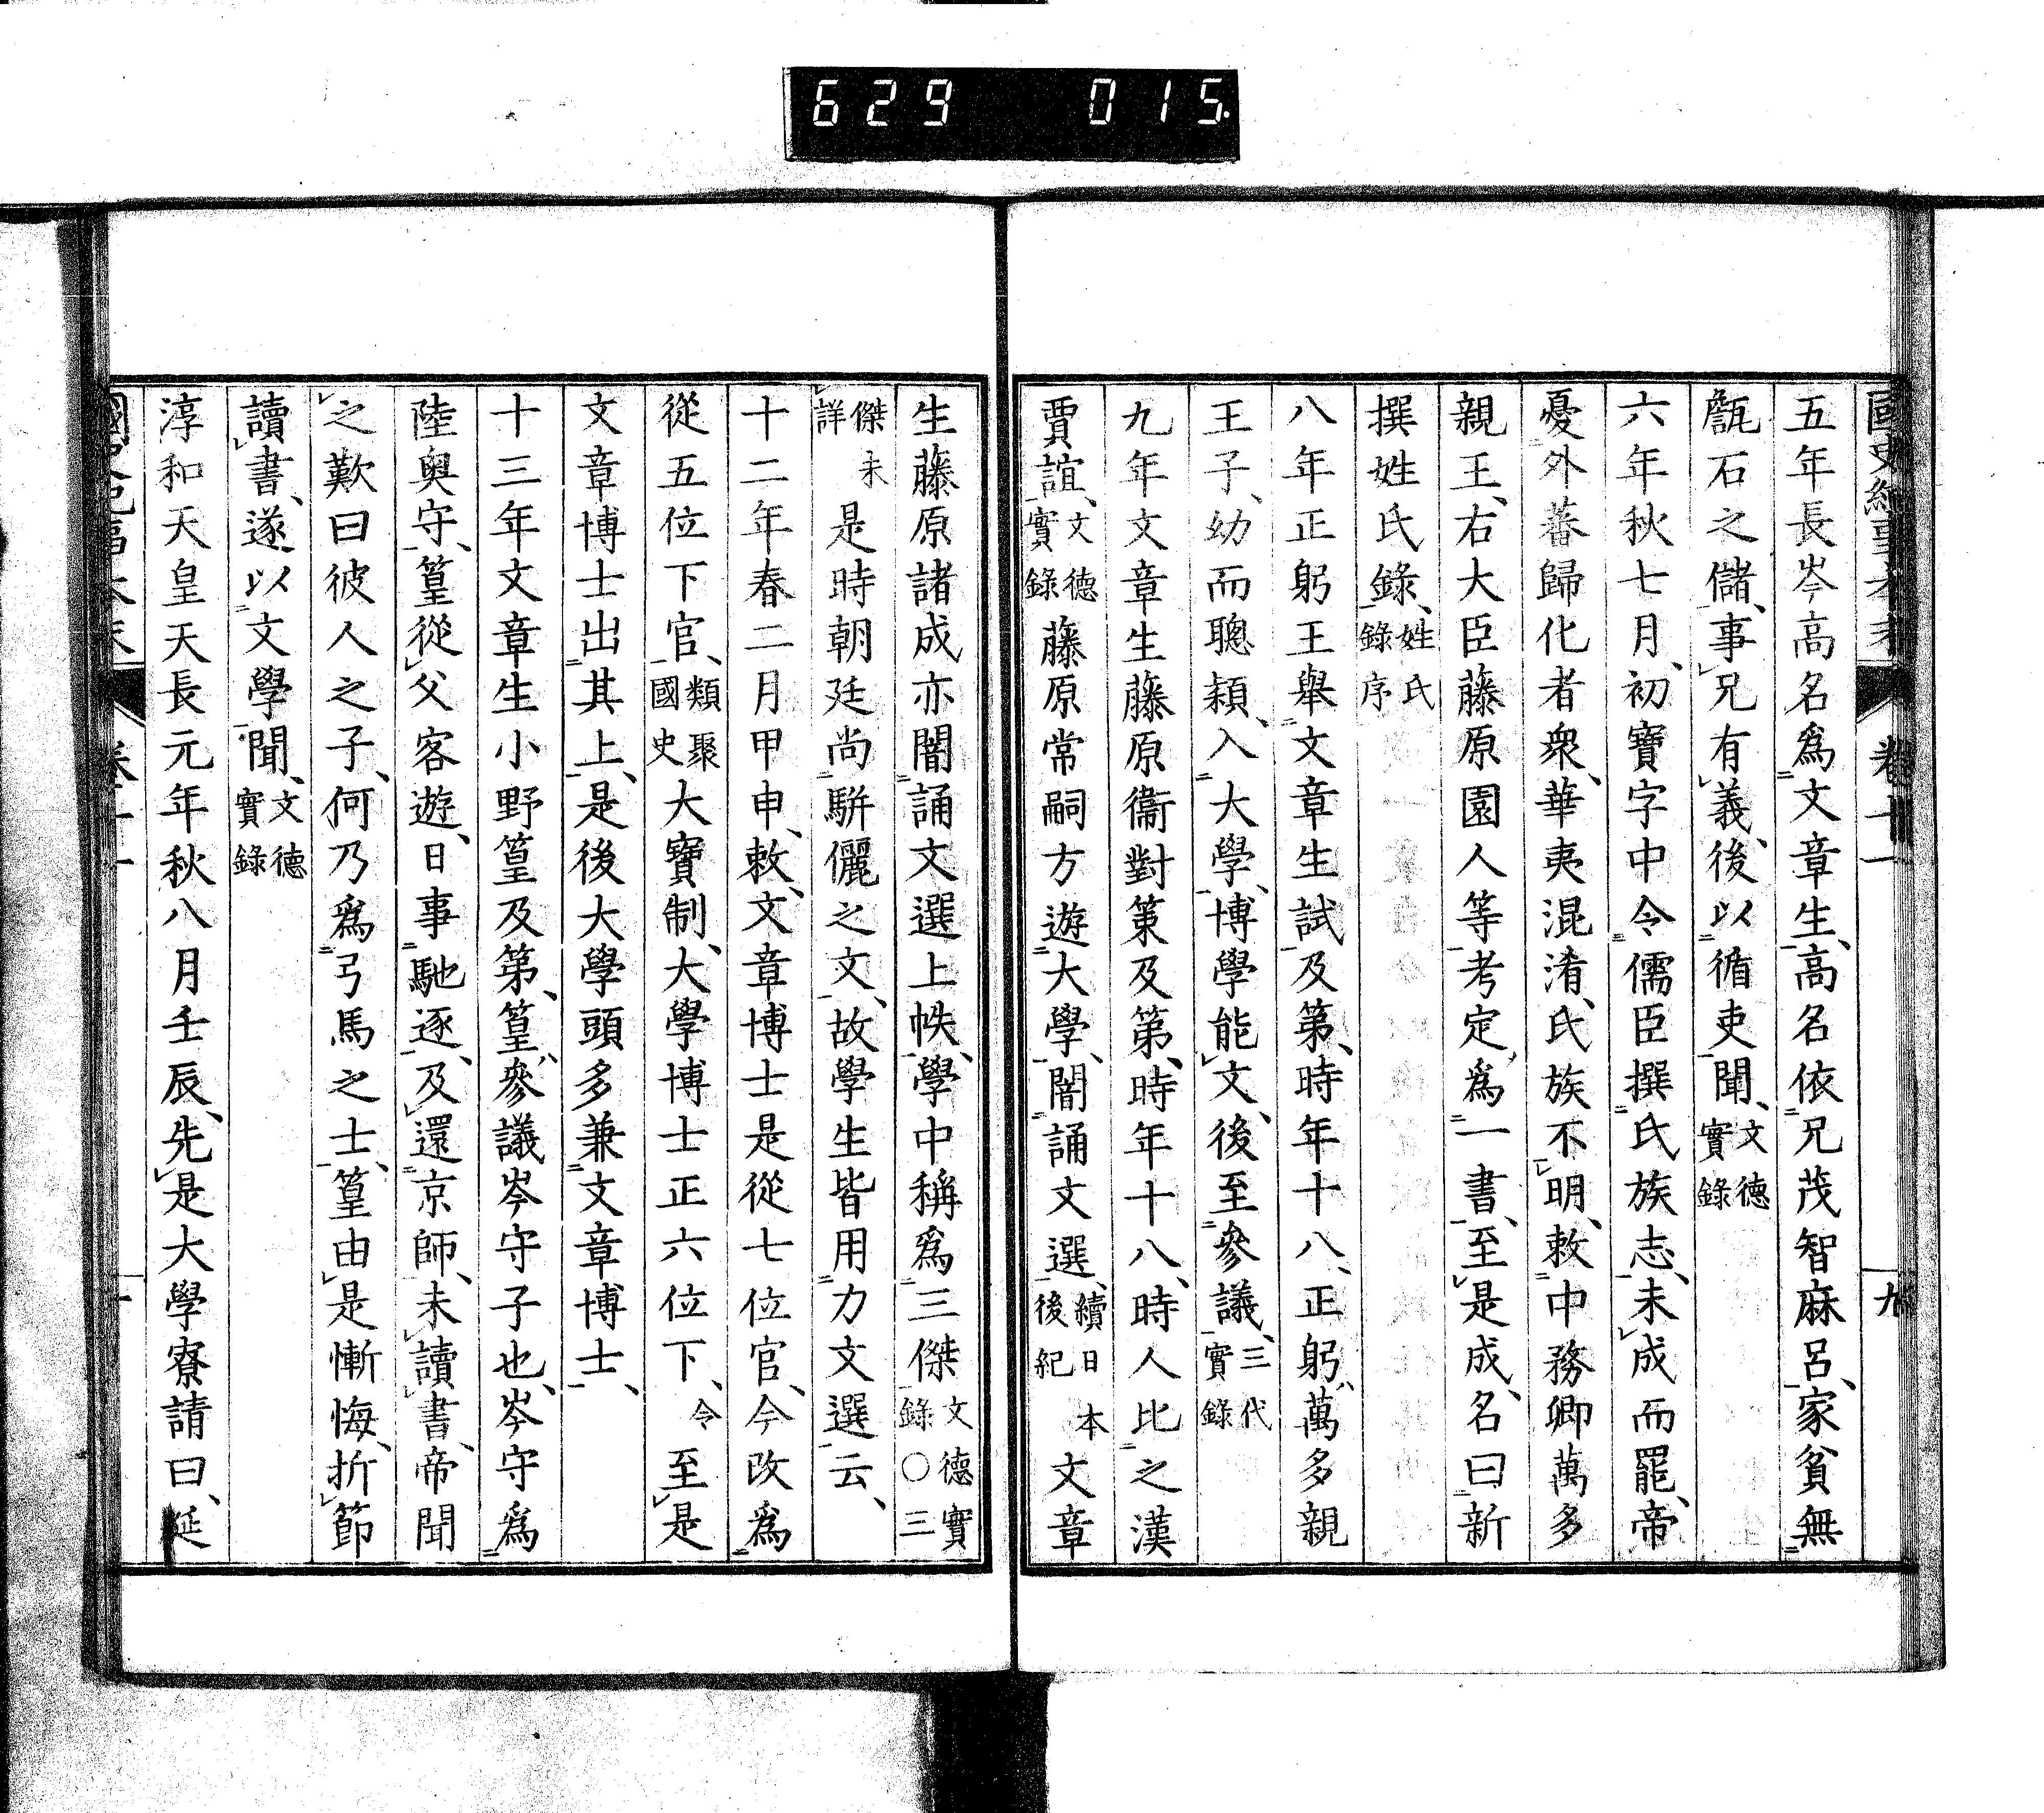 629 015
國史紀事本末 卷十一 九
五年長岑高名爲文章生、高名依兄茂智麻呂、家貧無
甔石之儲、事兄有義、後以循吏聞、文德實錄
六年秋七月、初寶字中令儒臣撰氏族志、未成而罷、帝
憂外蕃歸化者衆、華夷混淆、氏族不明、敕中務卿萬多
親王、右大臣藤原園人等考定爲一書、至是成、名曰新
撰姓氏錄、姓氏錄序
八年正躬王舉文章生試及第、時年十八、正躬、萬多親
王子、幼而聰穎、入大學、博學能文、後至參議、三代實錄
九年文章生藤原衞對策及第、時年十八、時人比之漢
賈誼、文德實錄藤原常嗣方遊大學、闇誦文選、續日本後紀文章
生藤原諸成亦闇誦文選上帙、學中稱爲三傑文德實錄〇三
傑未詳是時朝廷尚駢儷之文、故學生皆用力文選云、
十二年春二月甲申、敕、文章博士是從七位官、今改爲
從五位下官、類聚國史大寶制、大學博士正六位下、令至是
文章博士出其上、是後大學頭多兼文章博士、
十三年文章生小野篁及第、篁、參議岑守子也、岑守爲
陸奥守、篁從父客遊、日事馳逐、及還京師、未讀書、帝聞
之歎曰彼人之子、何乃爲弓馬之士、篁由是慚悔、折節
讀書、遂以文學聞、文德實錄
淳和天皇天長元年秋八月壬辰、先是大學寮請曰、延